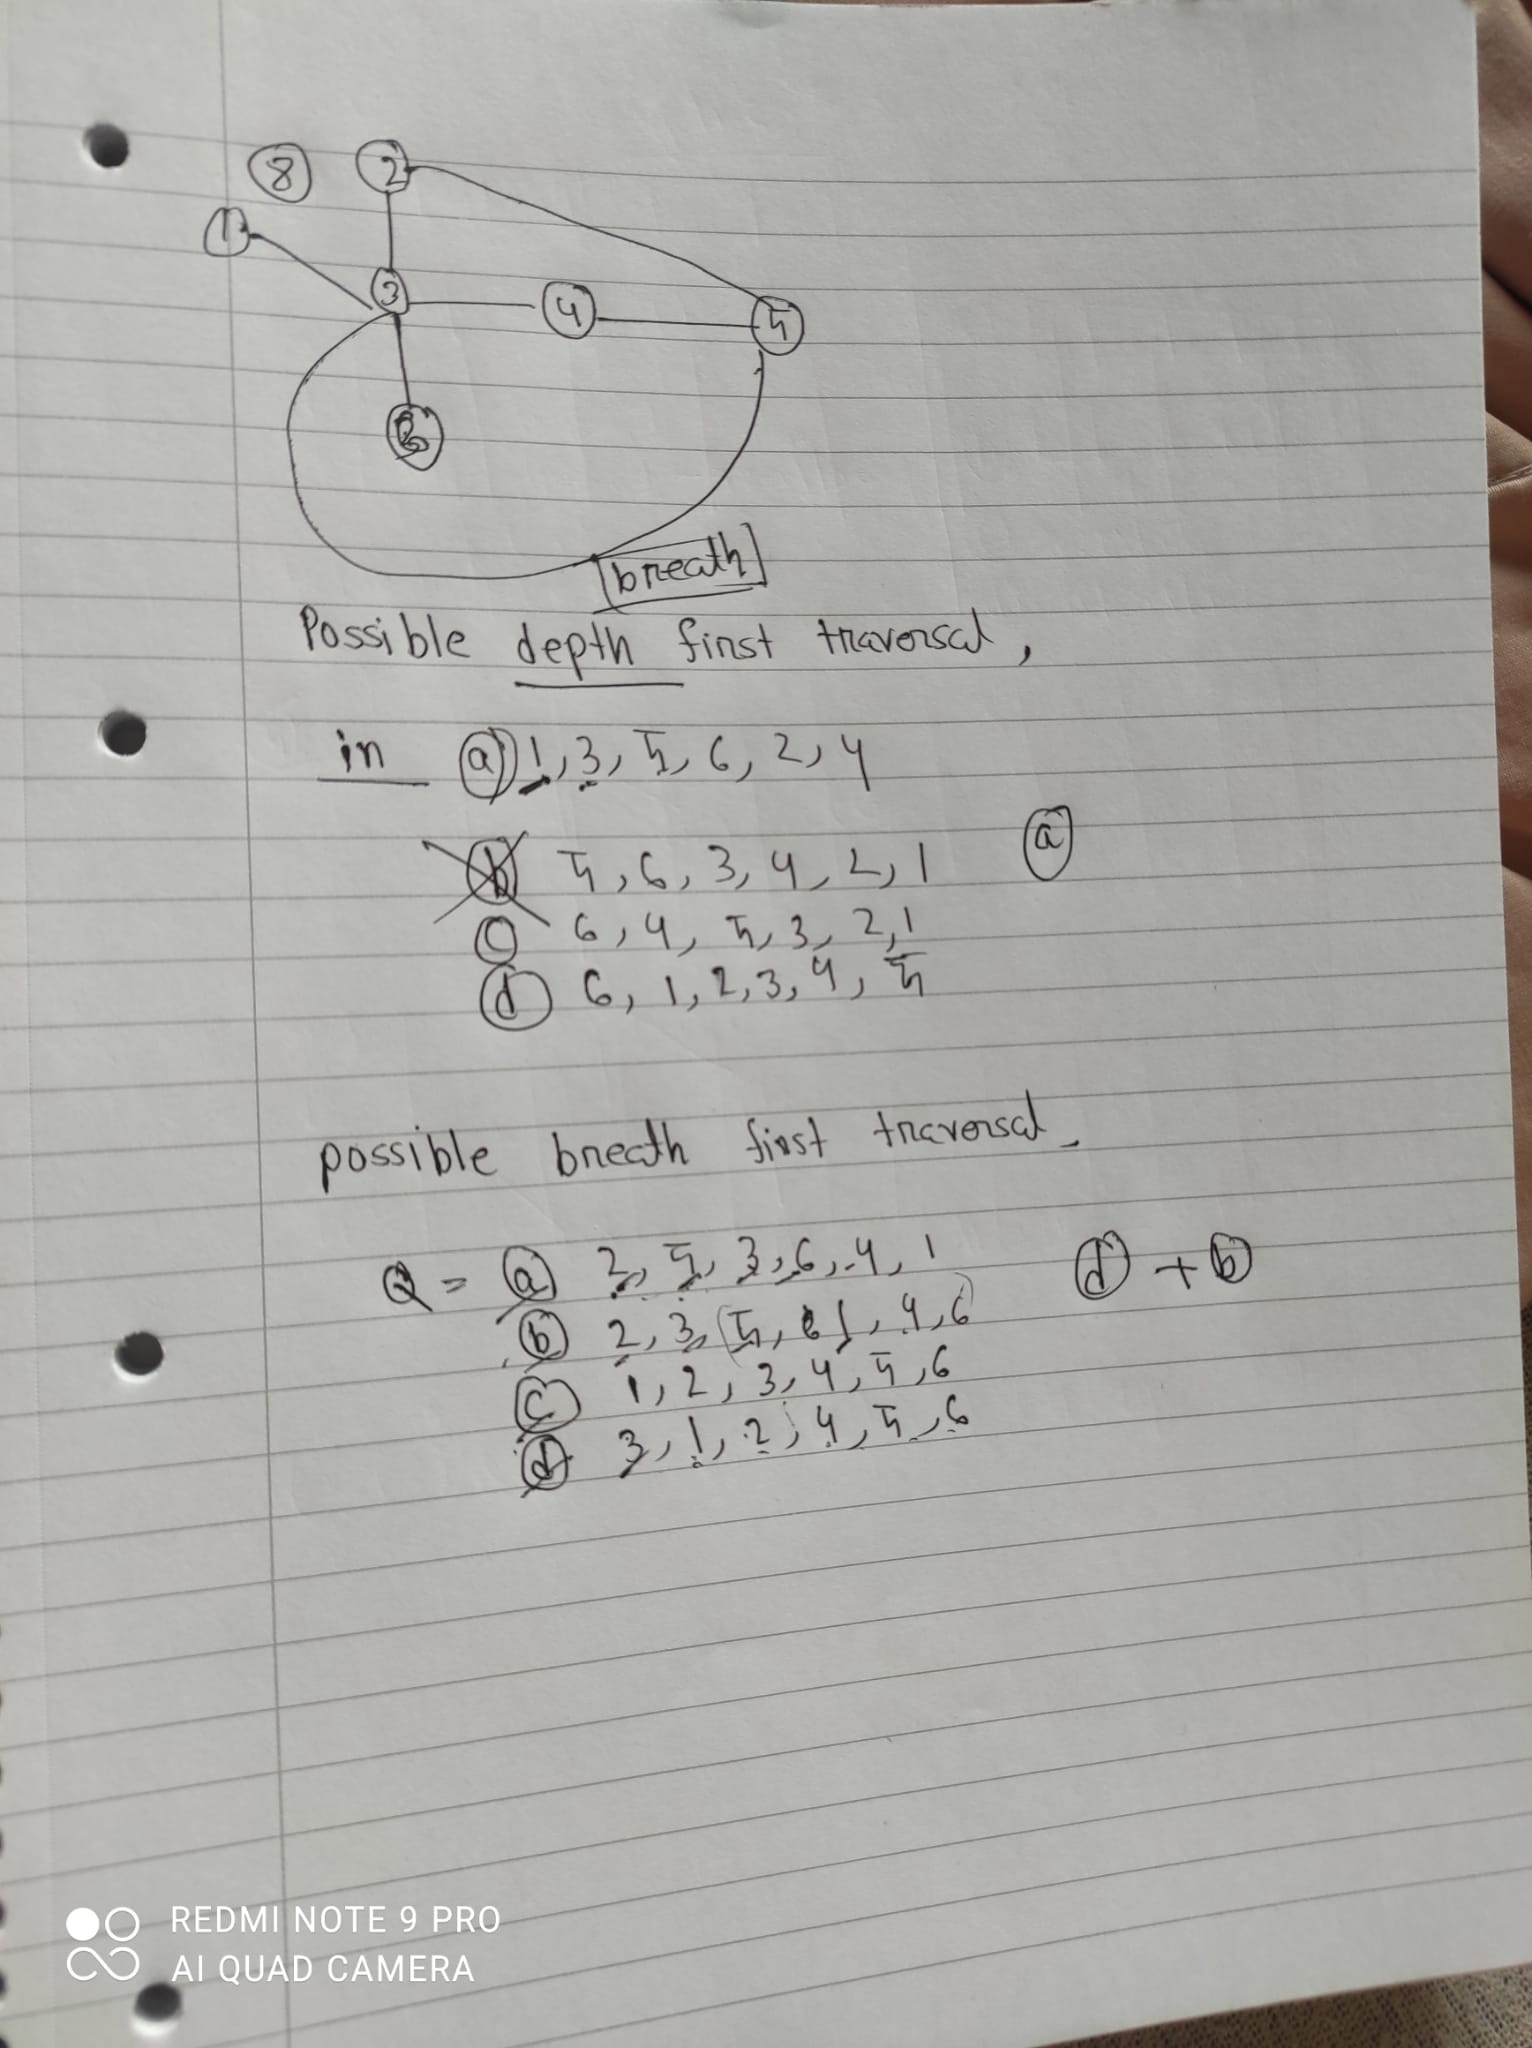 8 2
1
3 4 5
breath
Possible depth first traversal,
in a) 1, 3, 5, 6, 2, 4
b 5, 6, 3, 4, 2, 1 a
c 6, 4, 5, 3, 2, 1
d 6, 1, 2, 3, 4, 5
possible breath first traversal
Q = a 2, 5, 3, 6, 4, 1 d + b
b 2, 3, 5, 1, 4, 6
c 1, 2, 3, 4, 5, 6
d 3, 1, 2, 4, 5, 6
REDMI NOTE 9 PRO
AI QUAD CAMERA